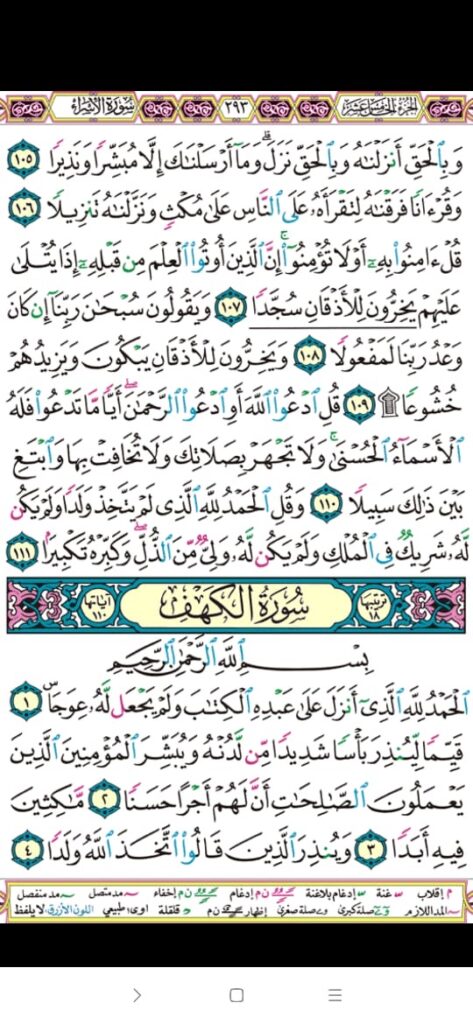 الجزء الخامس عشر ٢٩٣ سورة الإسراء
وَبِٱلْحَقِّ أَنزَلْنَٰهُ وَبِٱلْحَقِّ نَزَلَ ۗ وَمَآ أَرْسَلْنَٰكَ إِلَّا مُبَشِّرًا وَنَذِيرًا ١٠٥
وَقُرْءَانًا فَرَقْنَٰهُ لِتَقْرَأَهُۥ عَلَى ٱلنَّاسِ عَلَىٰ مُكْثٍ وَنَزَّلْنَٰهُ تَنزِيلًا ١٠٦
قُلْ ءَامِنُوا۟ بِهِۦٓ أَوْ لَا تُؤْمِنُوٓا۟ ۚ إِنَّ ٱلَّذِينَ أُوتُوا۟ ٱلْعِلْمَ مِن قَبْلِهِۦٓ إِذَا يُتْلَىٰ
عَلَيْهِمْ يَخِرُّونَ لِلْأَذْقَانِ سُجَّدًا ١٠٧ وَيَقُولُونَ سُبْحَٰنَ رَبِّنَآ إِن كَانَ
وَعْدُ رَبِّنَا لَمَفْعُولًا ١٠٨ وَيَخِرُّونَ لِلْأَذْقَانِ يَبْكُونَ وَيَزِيدُهُمْ
خُشُوعًا ۩ ١٠٩ قُلِ ٱدْعُوا۟ ٱللَّهَ أَوِ ٱدْعُوا۟ ٱلرَّحْمَٰنَ ۖ أَيًّا مَّا تَدْعُوا۟ فَلَهُ
ٱلْأَسْمَآءُ ٱلْحُسْنَىٰ ۚ وَلَا تَجْهَرْ بِصَلَاتِكَ وَلَا تُخَافِتْ بِهَا وَٱبْتَغِ
بَيْنَ ذَٰلِكَ سَبِيلًا ١١٠ وَقُلِ ٱلْحَمْدُ لِلَّهِ ٱلَّذِى لَمْ يَتَّخِذْ وَلَدًا وَلَمْ يَكُن
لَّهُۥ شَرِيكٌ فِى ٱلْمُلْكِ وَلَمْ يَكُن لَّهُۥ وَلِىٌّ مِّنَ ٱلذُّلِّ ۖ وَكَبِّرْهُ تَكْبِيرًۢا ١١١
ترتيبها ١٨ سورة الكهف آياتها ١١٠
بِسْمِ ٱللَّهِ ٱلرَّحْمَٰنِ ٱلرَّحِيمِ
ٱلْحَمْدُ لِلَّهِ ٱلَّذِىٓ أَنزَلَ عَلَىٰ عَبْدِهِ ٱلْكِتَٰبَ وَلَمْ يَجْعَل لَّهُۥ عِوَجَا ۜ ١
قَيِّمًا لِّيُنذِرَ بَأْسًا شَدِيدًا مِّن لَّدُنْهُ وَيُبَشِّرَ ٱلْمُؤْمِنِينَ ٱلَّذِينَ
يَعْمَلُونَ ٱلصَّٰلِحَٰتِ أَنَّ لَهُمْ أَجْرًا حَسَنًا ٢ مَّٰكِثِينَ
فِيهِ أَبَدًا ٣ وَيُنذِرَ ٱلَّذِينَ قَالُوا۟ ٱتَّخَذَ ٱللَّهُ وَلَدًا ٤
م إقلاب غنة إدغام بلاغنة ن م إدغام ن م إخفاء مد متصل مد منفصل
المد اللازم صلة كبرى صلة صغرى إظهار ن م قلقلة اوى: طبيعي اللون الأزرق: لا يلفظ